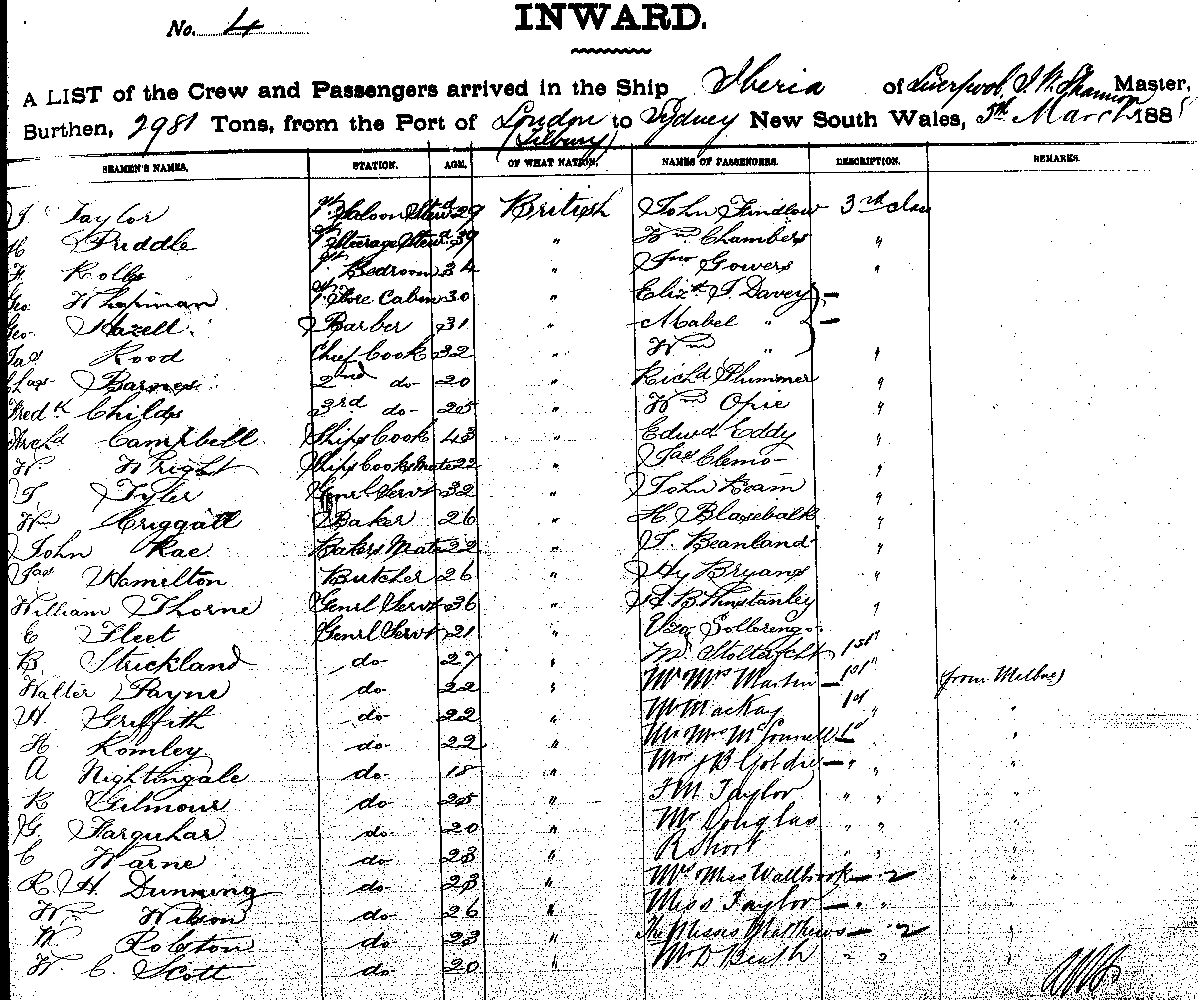 No. 4
INWARD.
A LIST of the Crew and Passengers arrived in the Ship Iberia of Liverpool, J. W. Shannon Master,
Burthen, 2981 Tons, from the Port of London (Tilbury) to Sydney New South Wales, 5th March 188
SEAMEN'S NAMES. STATION. AGE. OF WHAT NATION. NAMES OF PASSENGERS. DESCRIPTION. REMARKS.
J Taylor 1st Saloon Stewd 29 British John Findlow 3rd class
H Priddle 1st Steerage Stewd 39 " Wm Chambers "
H Rolls 1st Bedroom 34 " Jno Gowers "
Geo Whapman 1st Fore Cabin 30 " Elizth J. Davey —
Geo Hazell Barber 31 " Mabel " —
Jas Rood Chief Cook 32 " Wm " "
Chas Barnes 2nd do 20 " Richd Plummer "
Fredk Childs 3rd do 25 " Wm Opie "
Archd Campbell Ships Cook 43 " Edwd Eddy "
W Wright Ships Cooks Mate 22 " Jas Clemo "
J Tyler Genrl Servt 32 " John Beam "
Wm Criggall Baker 26 " H Blazebalk "
John Rae Bakers Mate 22 " J. Beanland "
Jas Hamilton Butcher 26 " Hy Bryans "
William Thorne Genrl Servt 36 " B Winstanley "
C Fleet Genrl Servt 21 "
B. Strickland do 27 " Mr 1st
Walter Payne do 22 " Mr Mrs Martin — 1st (from Melbne)
W Griffith do 22 " Mr Mackay 1st " "
H Romley do 22 " Mr Mrs McConnell 1st "
A Nightingale do 18 " Mrs J B Goldie — " " "
R Gilmour do 25 " J M Taylor " " "
G. Farquhar do 20 " Mr Douglas " " "
C Warne do 23 " R Short " " "
R H Dunning do 23 " Mrs Miss Wallbrook — " 2 "
Wm Wilson do 26 " Miss Taylor — " "
W Rolston do 23 " The Misses Matthews — " 2 "
W. C. Scott do 20 " Mr D Heath " " "